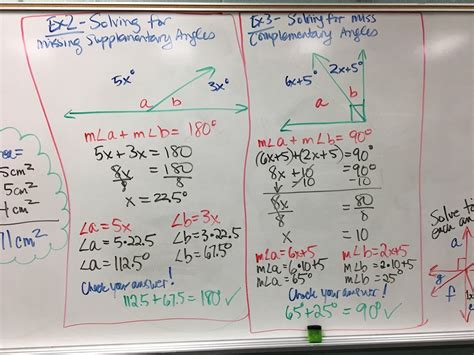 Ex.2 - Solving for
missing Supplementary Angles
5x°
3x°
a
b
m∠a + m∠b = 180°
5x + 3x = 180
8x = 180
8 8
x = 22.5°
∠a = 5x
∠b = 3x
∠a = 5·22.5
∠b = 3·22.5
∠a = 112.5°
∠b = 67.5°
Check your answer!
112.5 + 67.5 = 180° ✓
Ex 3 - Solving for miss
Complementary Angles
6x+5°
2x+5°
a
b
m∠a + m∠b = 90°
(6x+5)+(2x+5) = 90°
8x + 10 = 90°
-10 -10
8x = 80
8 8
x = 10
m∠a = 6x+5
m∠b = 2x+5
m∠a = 6·10+5
m∠b = 2·10+5
m∠a = 65°
m∠b = 25°
Check your answer!
65° + 25° = 90° ✓
5cm²
5cm²
cm²
71 cm²
Solve fo
each an
a
g
f
e